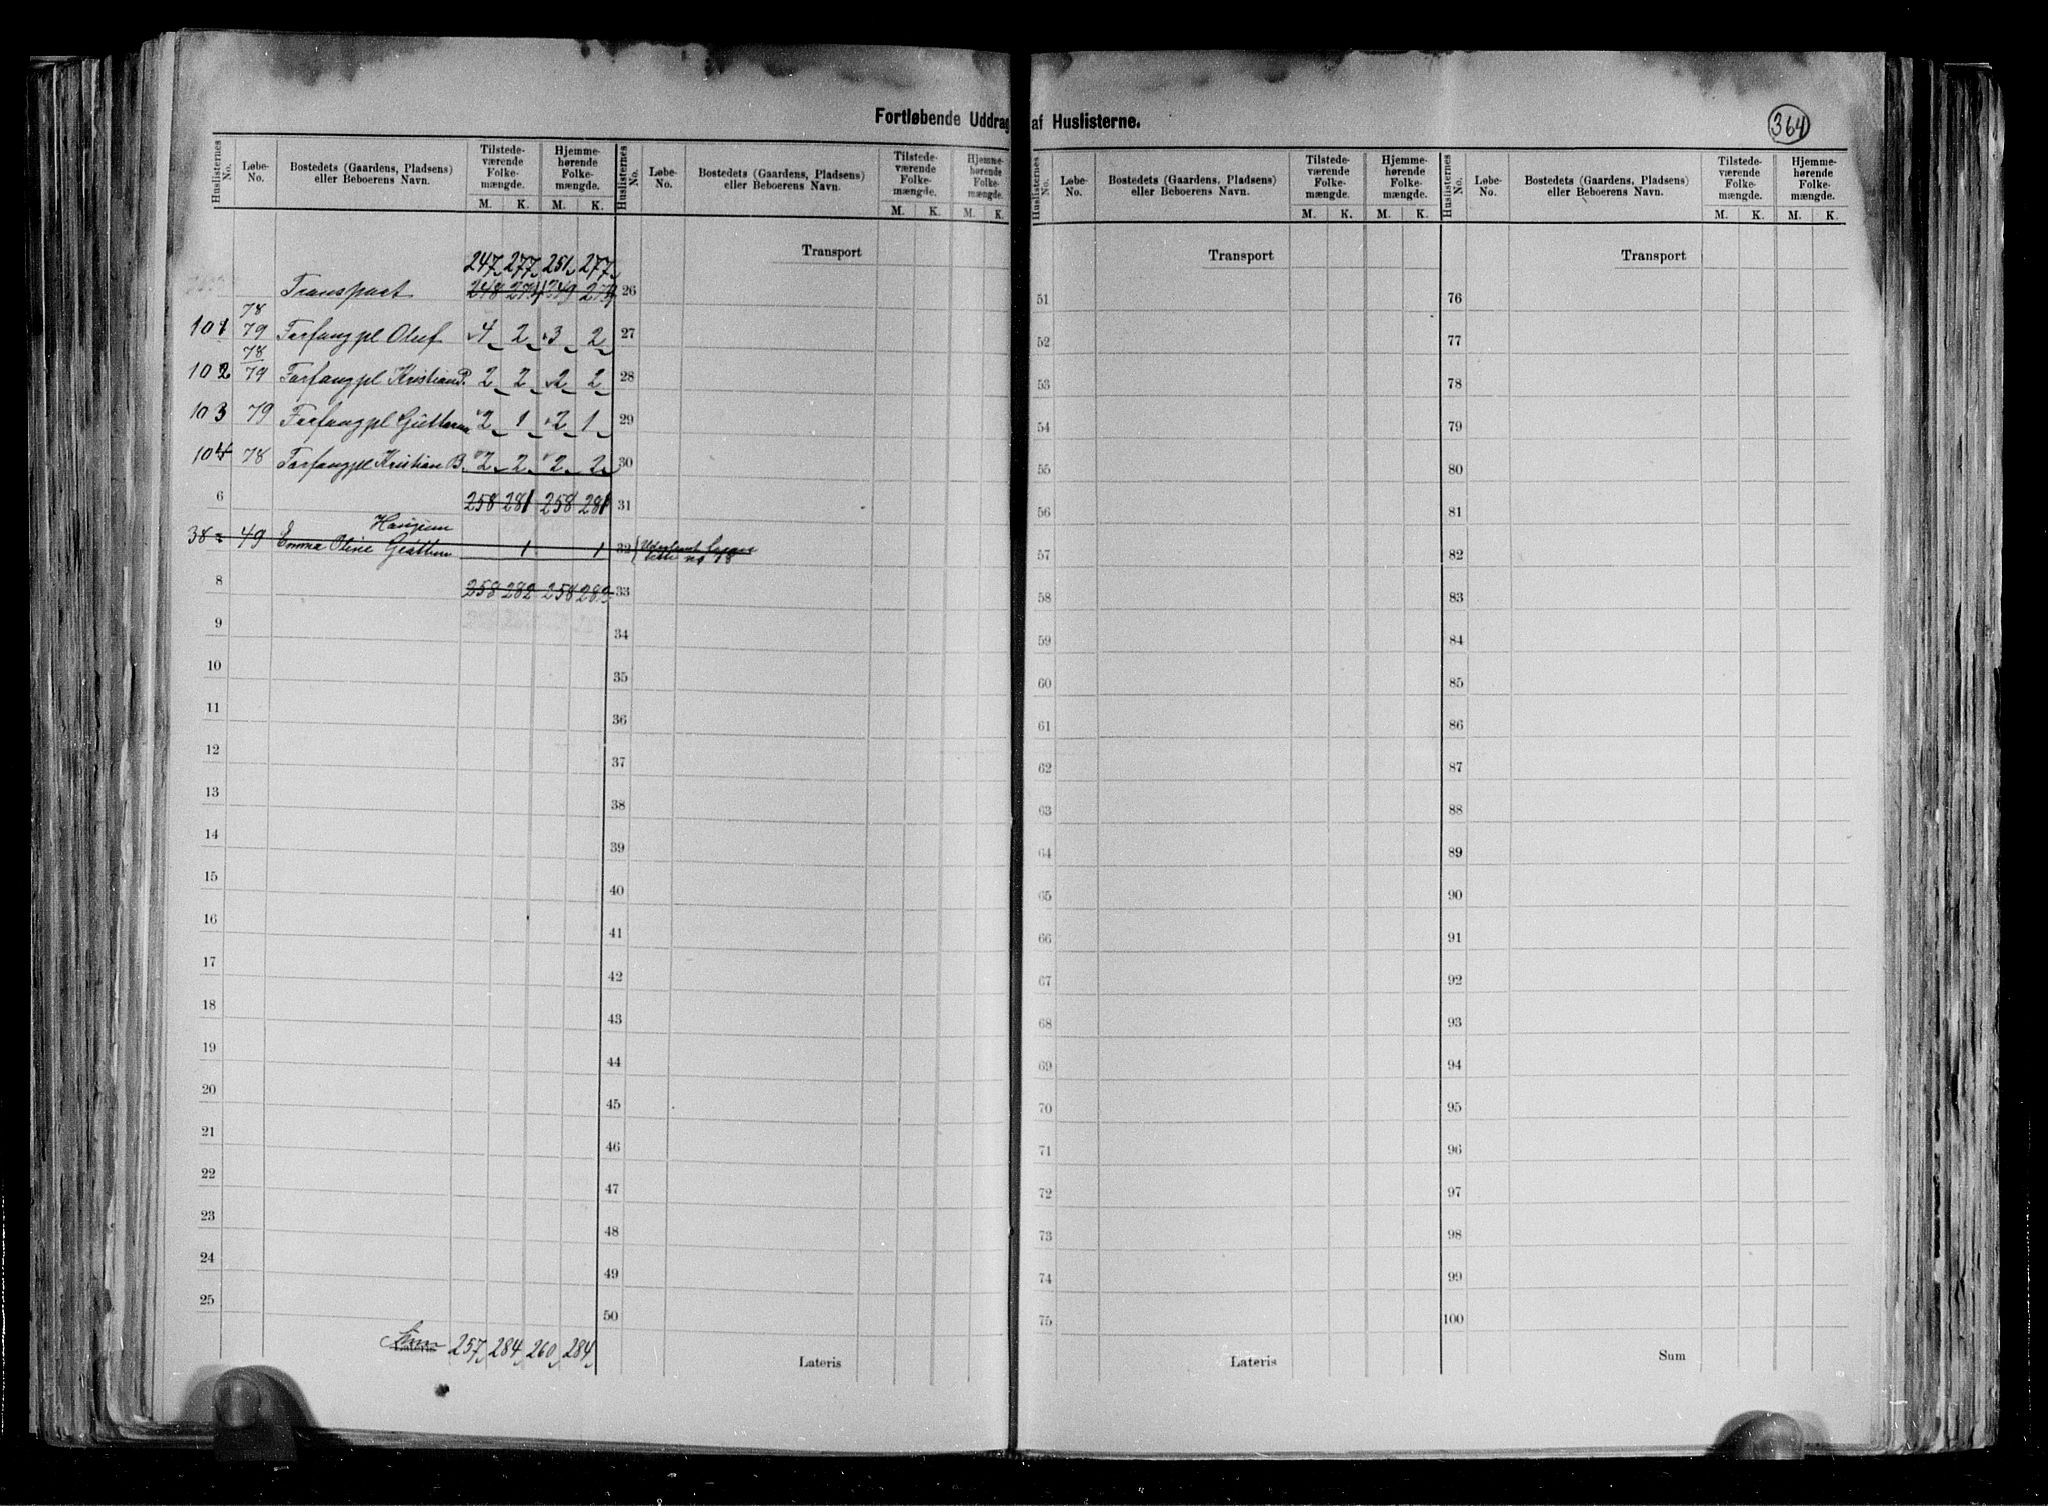 Fortløbende Uddrag af Huslisterne.
364
Huslisternes No. Løbe-No. Bostedets (Gaardens, Pladsens) eller Beboerens Navn. Tilstedeværende Folkemængde. M. K. Hjemmehørende Folkemængde. M. K.
247 277 251 277
Transport 248 273 249 273
78
101 79 Forfangpl Oluf 4 2 3 2
78
102 79 Forfangpl Kristian P. 2 2 2 2
103 79 Forfangpl 2 1 2 1
104 78 Forfangpl Kristian B. 2 2 2 2
6 258 281 258 281
38 49 Emma Oline 1 1
8 258 282 258 282
9
10
11
12
13
14
15
16
17
18
19
20
21
22
23
24
25
Sum Lateris 257 284 260 284
Huslisternes No. Løbe-No. Bostedets (Gaardens, Pladsens) eller Beboerens Navn. Tilstedeværende Folkemængde. M. K. Hjemmehørende Folkemængde. M. K.
Transport
26
27
28
29
30
31
32
33
34
35
36
37
38
39
40
41
42
43
44
45
46
47
48
49
50
Lateris
Huslisternes No. Løbe-No. Bostedets (Gaardens, Pladsens) eller Beboerens Navn. Tilstedeværende Folkemængde. M. K. Hjemmehørende Folkemængde. M. K.
Transport
51
52
53
54
55
56
57
58
59
60
61
62
63
64
65
66
67
68
69
70
71
72
73
74
75
Lateris
Huslisternes No. Løbe-No. Bostedets (Gaardens, Pladsens) eller Beboerens Navn. Tilstedeværende Folkemængde. M. K. Hjemmehørende Folkemængde. M. K.
Transport
76
77
78
79
80
81
82
83
84
85
86
87
88
89
90
91
92
93
94
95
96
97
98
99
100
Sum